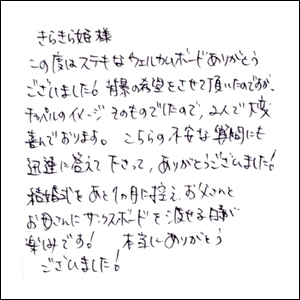 きらきら姫様
この度はステキなウェルカムボードありがとう
ございました!背景の希望をさせて頂いたのですが、
チャペルのイメージそのものでしたので、2人で大変
喜んでおります。こちらの不安な質問にも
迅速に答えて下さって、ありがとうございました!
結婚式をあと1ヵ月に控え、お父さんと
お母さんにサンクスボードを渡せる日が
楽しみです!本当にありがとう
ございました!